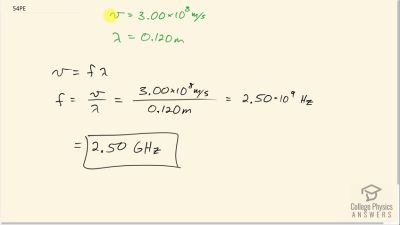 54PE
v = 3.00×10⁸ m/s
λ = 0.120 m
v = f λ
f = v/λ = 3.00×10⁸ m/s / 0.120 m = 2.50×10⁹ Hz
= 2.50 GHz
College Physics
ANSWERS